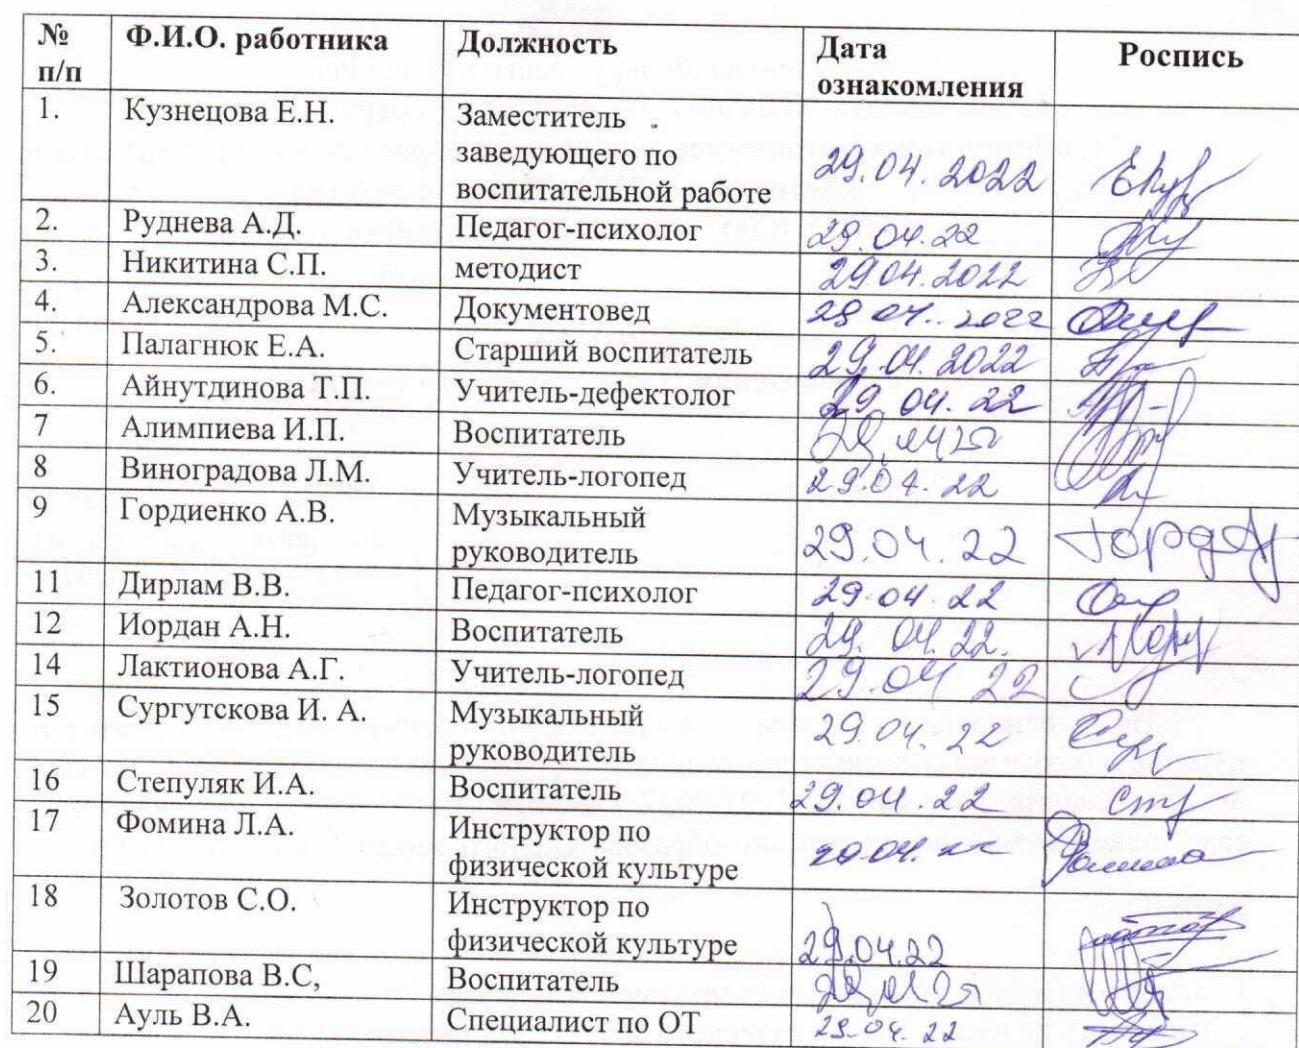 № Ф.И.О. работника Должность Дата Роспись
п/п ознакомления
1. Кузнецова Е.Н. Заместитель
заведующего по
воспитательной работе 29.04.2022
2. Руднева А.Д. Педагог-психолог 29.04.22
3. Никитина С.П. методист 29.04.2022
4. Александрова М.С. Документовед 29 04.. 2022
5. Палагнюк Е.А. Старший воспитатель 29.04.2022
6. Айнутдинова Г.П. Учитель-дефектолог 29.04.22
7 Алимпиева И.П. Воспитатель
8 Виноградова Л.М. Учитель-логопед 29.04.22
9 Гордиенко А.В. Музыкальный
руководитель 29.04.22
11 Дирлам В.В. Педагог-психолог 29.04.22
12 Иордан А.Н. Воспитатель 29.04.22.
14 Лактионова А.Г. Учитель-логопед 29.04 22
15 Сургутскова И. А. Музыкальный
руководитель 29.04.22
16 Степуляк И.А. Воспитатель 29.04.22
17 Фомина Л.А. Инструктор по
физической культуре
18 Золотов С.О. Инструктор по
физической культуре 29.04.22
19 Шарапова В.С, Воспитатель
20 Ауль В.А. Специалист по ОТ 29.04.22